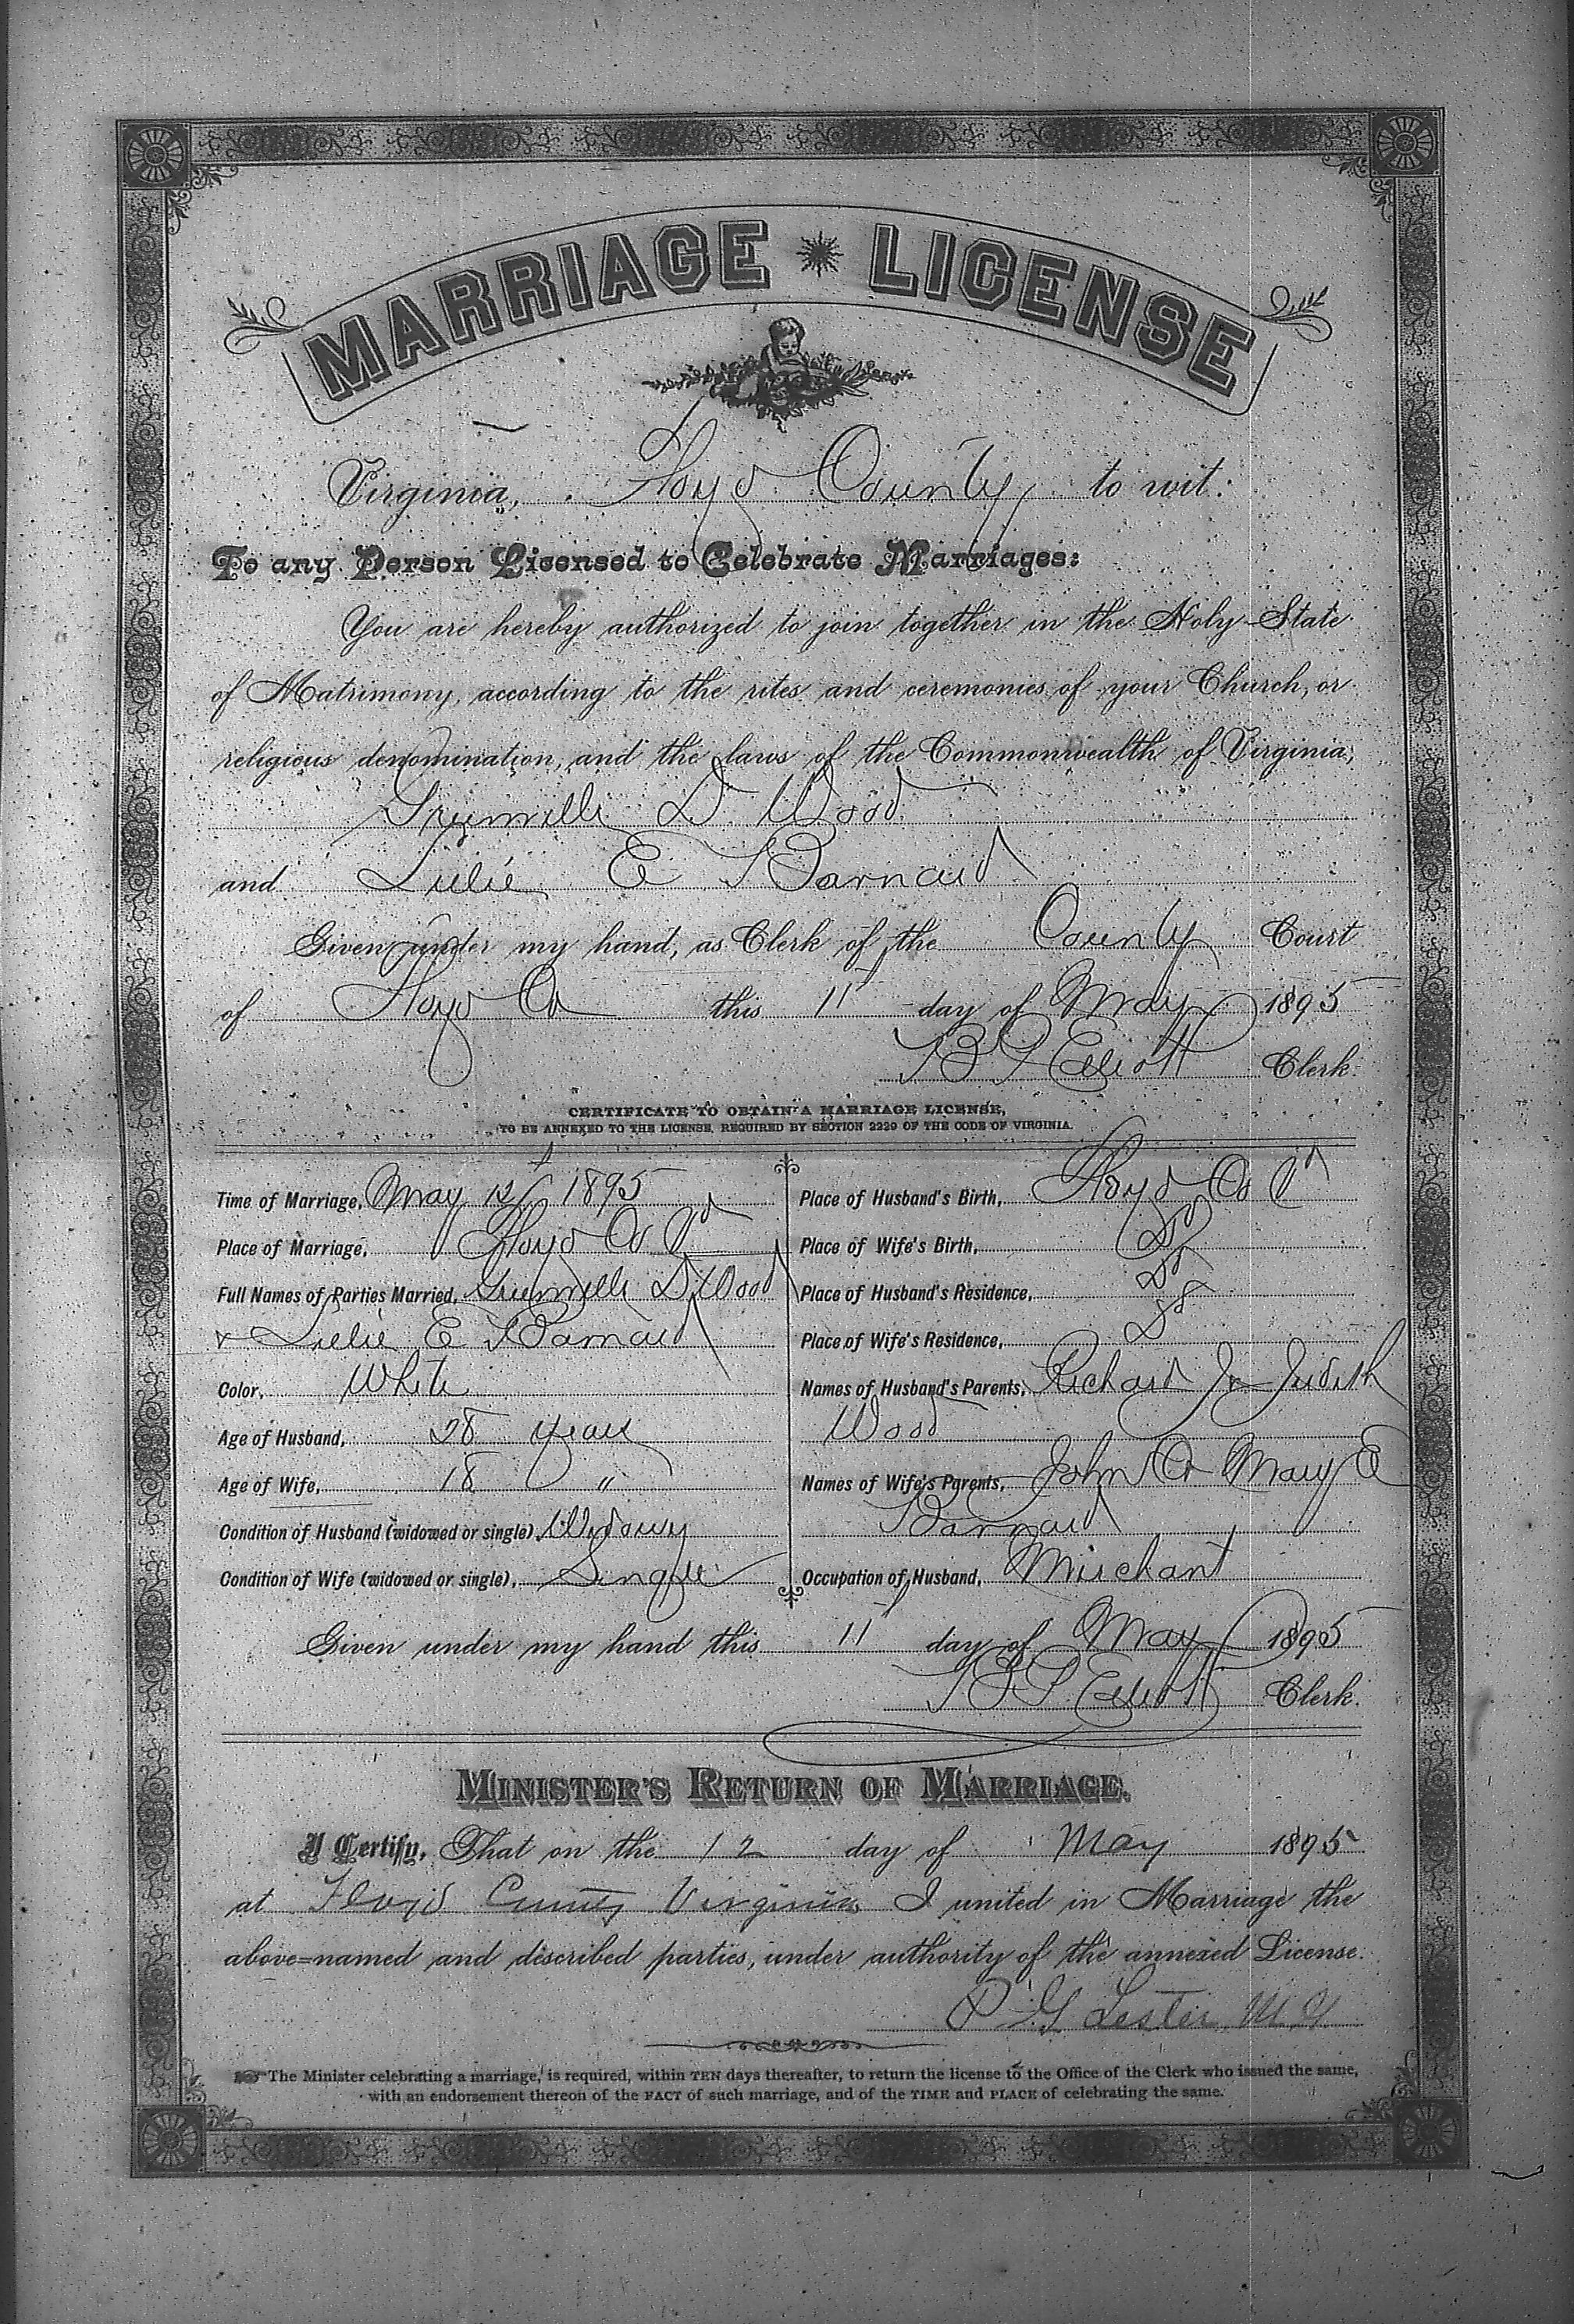 MARRIAGE LICENSE
Virginia, Floyd County, to wit:
To any Person Licensed to Celebrate Marriages:
You are hereby authorized to join together in the Holy State
of Matrimony, according to the rites and ceremonies of your Church, or
religious denomination, and the laws of the Commonwealth of Virginia,
D Wood
and E Barnard
Given under my hand, as Clerk of the County Court
of Floyd Co this 11 day of May 1895
Elliott Clerk.
CERTIFICATE TO OBTAIN A MARRIAGE LICENSE,
TO BE ANNEXED TO THE LICENSE, REQUIRED BY SECTION 2229 OF THE CODE OF VIRGINIA.
Time of Marriage, May 12 1895
Place of Marriage, Floyd Co Va
Full Names of Parties Married, D Wood
& E Barnard
Color, White
Age of Husband, 28 years
Age of Wife, 18 "
Condition of Husband (widowed or single),
Condition of Wife (widowed or single), Single
Place of Husband's Birth, Floyd Co Va
Place of Wife's Birth, Do
Place of Husband's Residence, Do
Place of Wife's Residence, Do
Names of Husband's Parents, Richard J & Judith
Wood
Names of Wife's Parents, John Mary E
Barnard
Occupation of Husband, Merchant
Given under my hand this 11 day of May 1895
Elliott Clerk.
MINISTER'S RETURN OF MARRIAGE.
I Certify, That on the 12 day of May 1895
at Floyd County Virginia I united in Marriage the
above=named and described parties, under authority of the annexed License.
P G Lester M G
The Minister celebrating a marriage, is required, within TEN days thereafter, to return the license to the Office of the Clerk who issued the same,
with an endorsement thereon of the FACT of such marriage, and of the TIME and PLACE of celebrating the same.